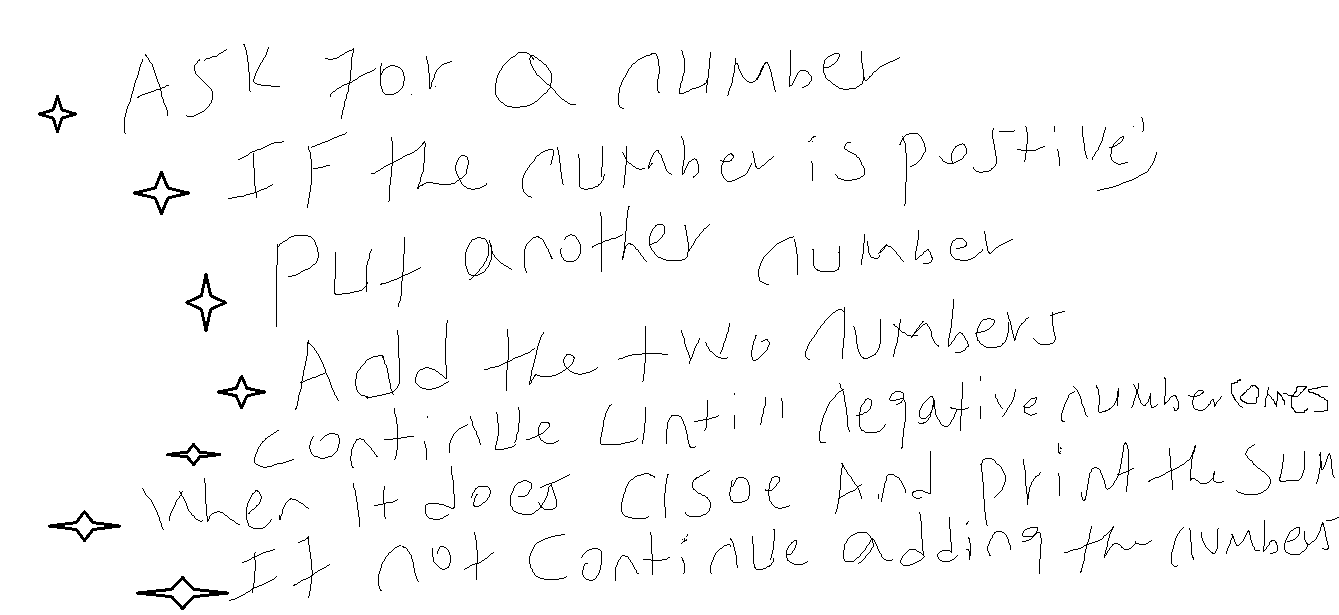 Ask for a number
IF the number is postive,
Put another number
Add the two numbers
continue Untill negative number comes
when It does clsoe And print the sum
If not Continue adding the numbers